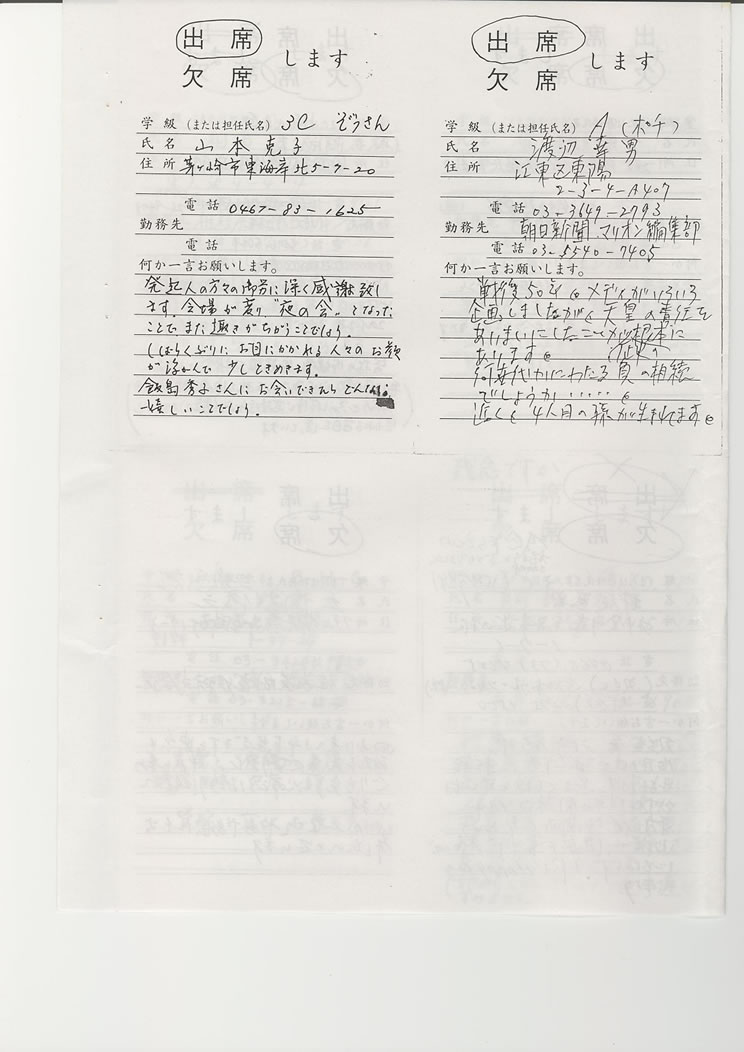 出席
欠席
します
学級（または担任氏名） 3C ぞうさん
氏名 山本克子
住所 茅ヶ崎市東海岸北5-7-20
電話 0467-83-1625
勤務先
電話
何か一言お願いします。
発起人の方々の御苦に深く感謝致し
ます。会場が変り"夜の会"となった
ことでまた趣きがちがうことでしょう。
しばらくぶりにお目にかかれる人々のお顔
が浮かんで少しときめきます。
飯島秀子さんにお会いできたらどんなに
嬉しいことでしょう。
出席
欠席
します
学級（または担任氏名） A（ポチ）
氏名 渡辺幸男
住所 江東区東陽
2-3-4-A407
電話 03-3649-2793
勤務先 朝日新聞マリオン編集部
電話 03-5540-7405
何か一言お願いします。
戦後50年。メディアがいろいろ
企画しましたが、天皇の責任を
あいまいにしたことが根本に
あります。
何世代かにわたる負の相続
でしょうか……。
近く、4人目の孫が生れてます。